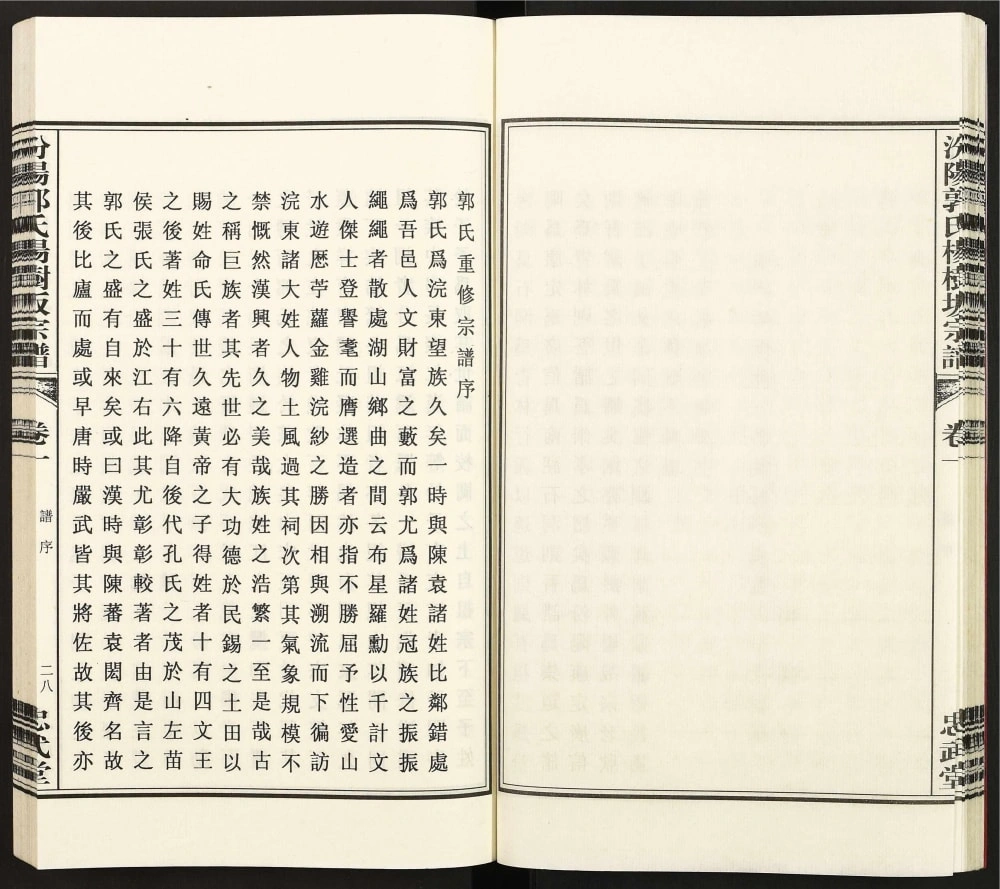 汾陽郭氏楊樹坂宗譜
卷一
忠武堂
郭氏重修宗譜序
郭氏爲浣東望族久矣一時與陳袁諸姓比鄰錯處
爲吾邑人文財富之藪而郭尤爲諸姓冠族之振振
繩繩者散處湖山鄉曲之間云布星羅勳以千計文
人傑士登譽耄而膺選造者亦指不勝屈予性愛山
水遊歷苧蘿金雞浣紗之勝因相與溯流而下徧訪
浣東諸大姓人物土風過其祠次第其氣象規模不
禁慨然漢興者久之美哉族姓之浩繁一至是哉古
之稱巨族者其先世必有大功德於民錫之土田以
賜姓命氏傳世久遠黃帝之子得姓者十有四文王
之後著姓三十有六降自後代孔氏之茂於山左苗
侯張氏之盛於江右此其尤彰彰較著者由是言之
郭氏之盛有自來矣或曰漢時與陳蕃袁閎齊名故
其後比廬而處或早唐時嚴武皆其將佐故其後亦
汾陽郭氏楊樹坂宗譜
卷一
譜序
二八
忠武堂